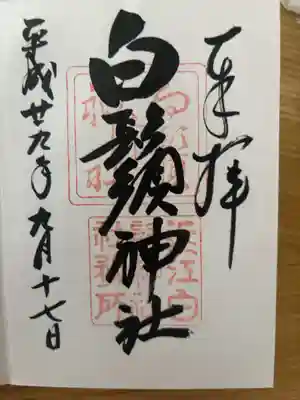 奉拝
白鬚神社
平成廿九年九月十七日